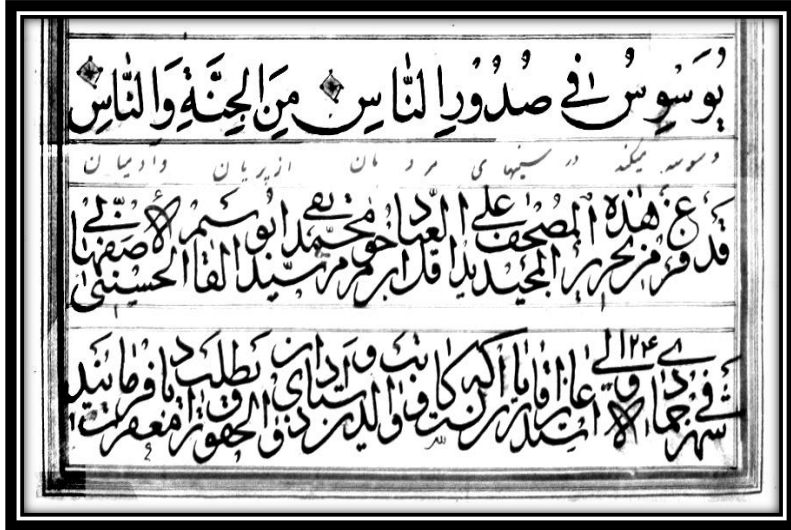 يُوَسْوِسُ فِي صُدُورِ النَّاسِ مِنَ الْجِنَّةِ وَالنَّاسِ
وسوسه میکند در سینهای مردمان از پریان وادمیان
قد فرغ من تحریر هذه المصحف المجید علی ید اقل العباد محمد تقی ابن مرحوم میر سید ابو القاسم الحسینی الاصفهانی
فی شهر جمادی الاولی استدعا از قاریان آنکه کاتب و والدین و استادان ذوی الحقوق را بطلب مغفرت یاد فرمایند